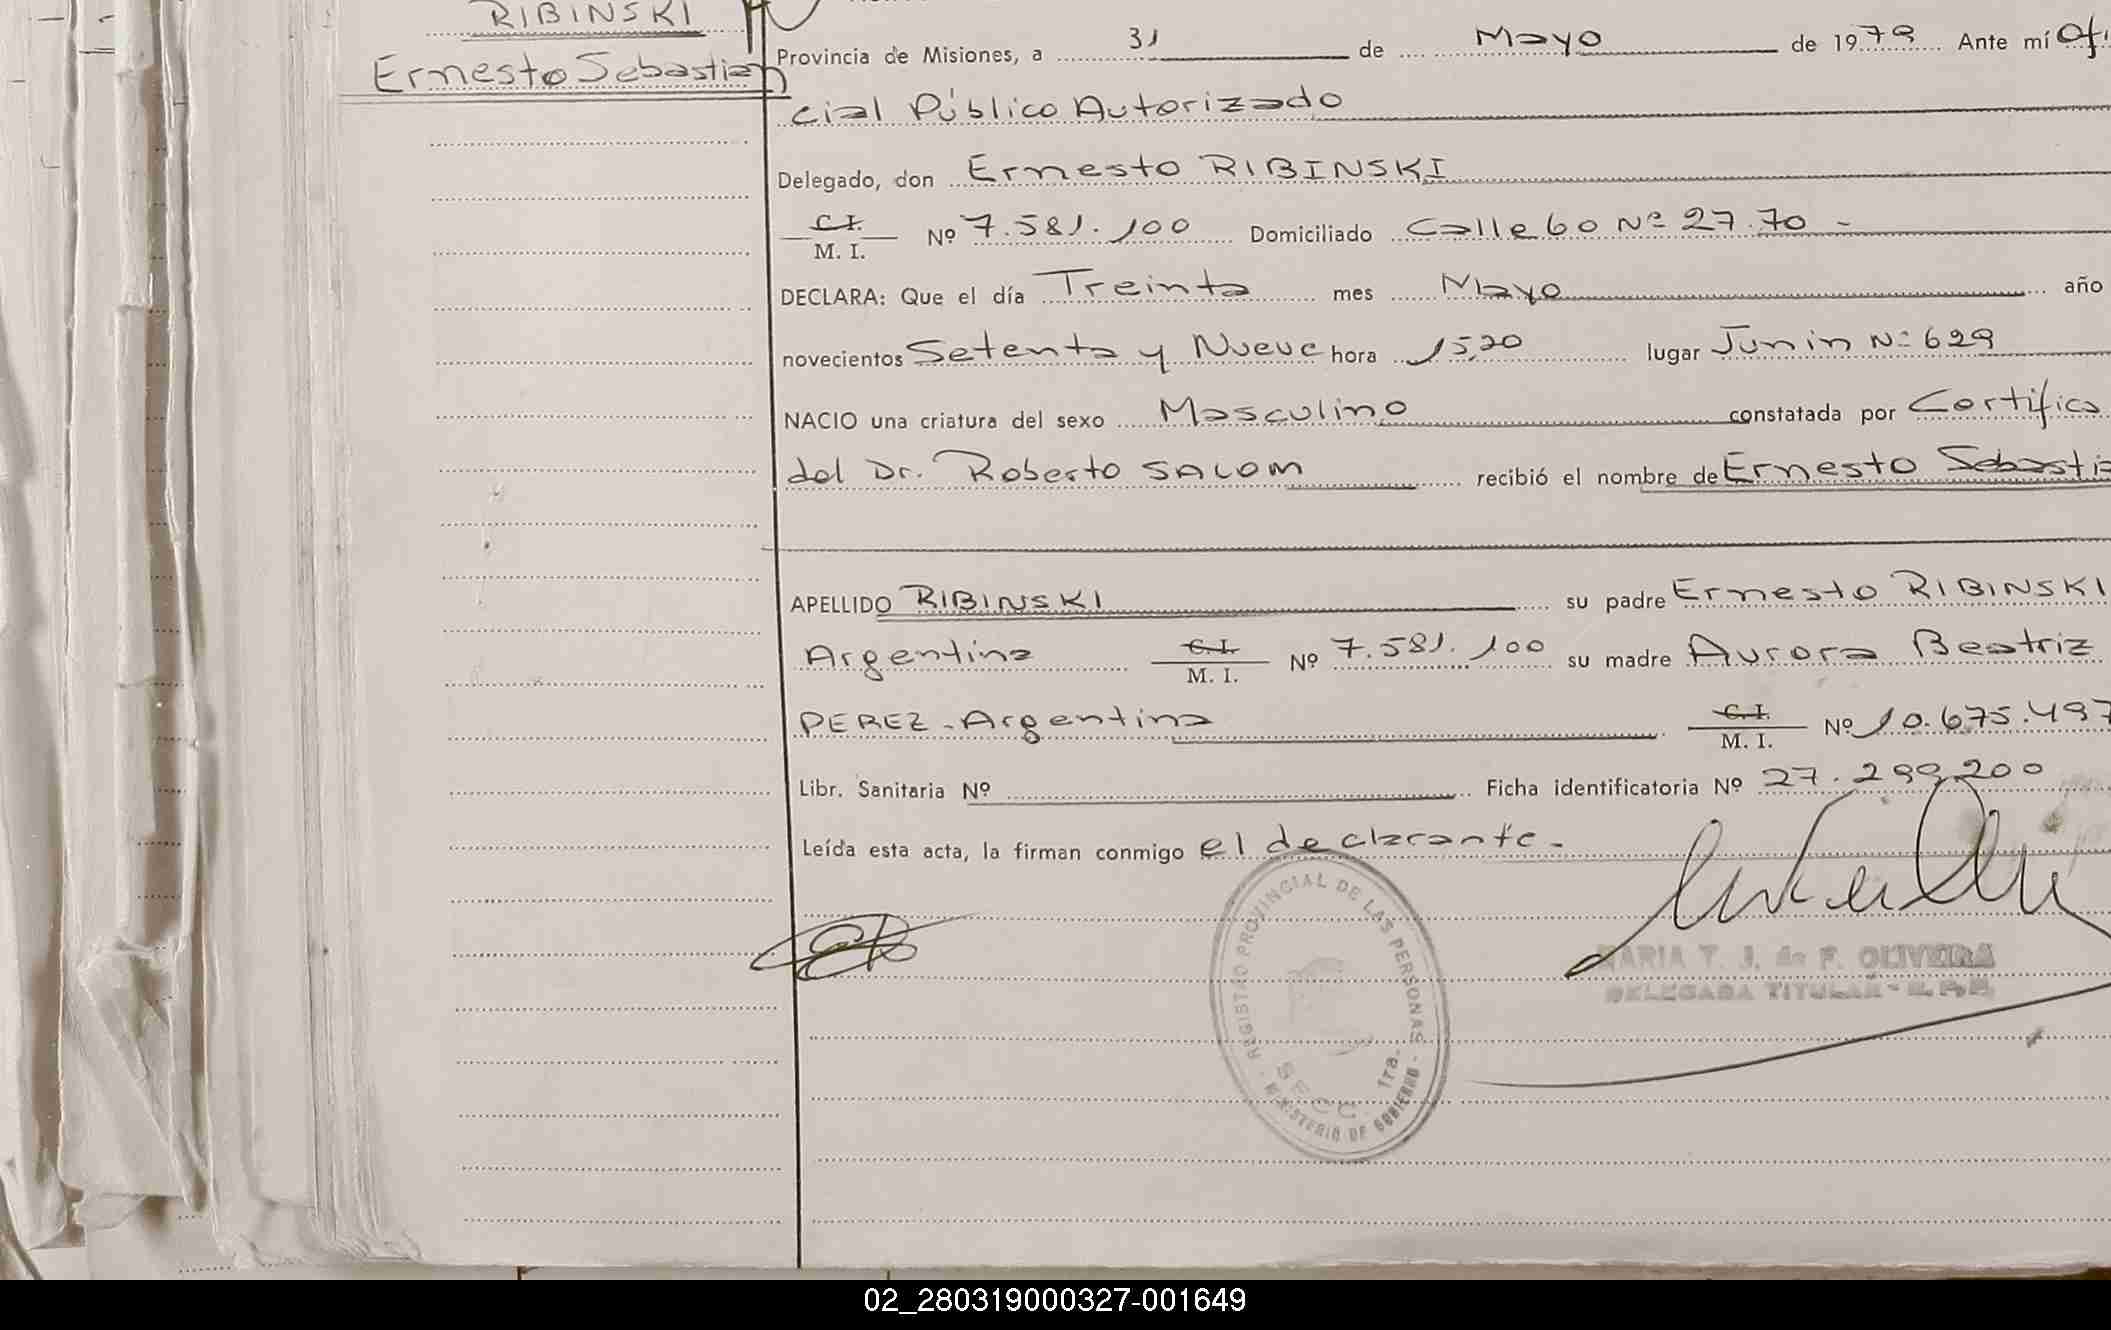 RIBINSKI
Ernesto Sebastian
Provincia de Misiones, a 31 de Mayo de 1979 Ante mí Ofi
cial Público Autorizado
Delegado, don Ernesto RIBINSKI
C.I.
M. I. Nº 7.581.100 Domiciliado Calle 60 Nº 27.70 -
DECLARA: Que el día Treinta mes Mayo año
novecientos Setenta y Nueve hora 15,20 lugar Junin Nº 629
NACIO una criatura del sexo Masculino constatada por Certifica
del Dr. Roberto SALOM recibió el nombre de Ernesto Sebastia
APELLIDO RIBINSKI su padre Ernesto RIBINSKI
Argentina C.I. M. I. Nº 7.581.100 su madre Aurora Beatriz
PEREZ - Argentina C.I. M. I. Nº 10.675.497
Libr. Sanitaria Nº Ficha identificatoria Nº 27.299.200
Leída esta acta, la firman conmigo el declarante.-
REGISTRO PROVINCIAL DE LAS PERSONAS - MINISTERIO DE GOBIERNO -
SECC. 1ra.
MARIA T. J. de F. OLIVEIRA
DELEGADA TITULAR - R. P. P.
02_280319000327-001649